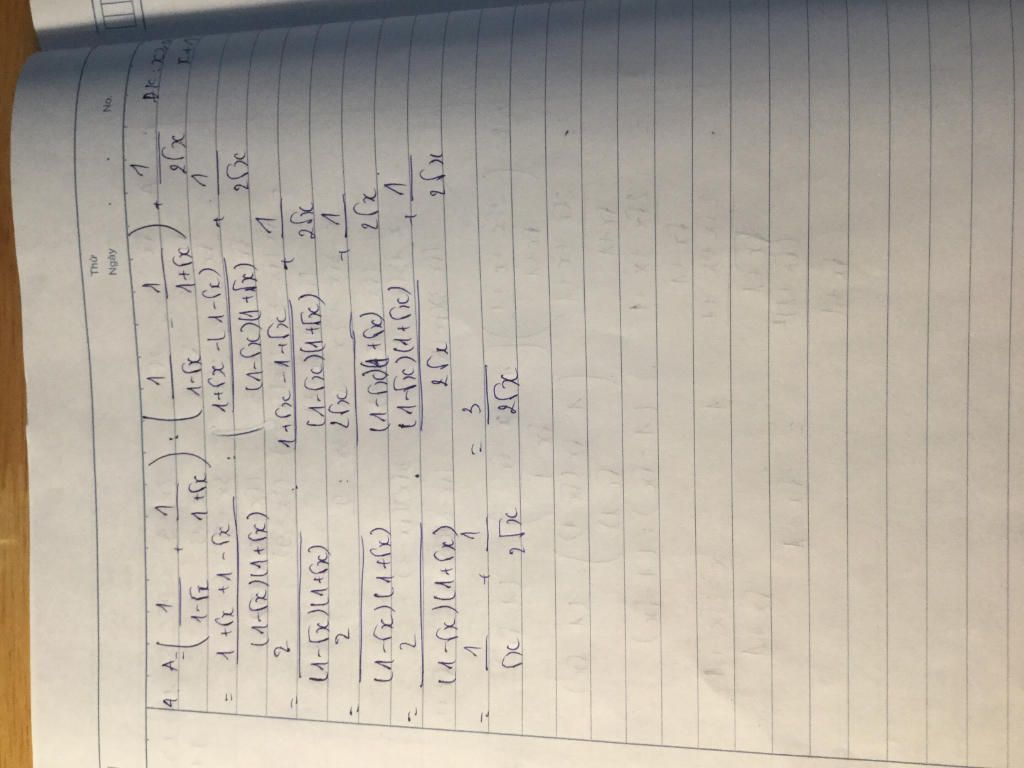 Thứ
Ngày
No.
4. A = ( 1/(1-√x) + 1/(1+√x) ) : ( 1/(1-√x) - 1/(1+√x) ) + 1/(2√x)
= (1+√x+1-√x)/((1-√x)(1+√x)) : ( (1+√x-(1-√x))/((1-√x)(1+√x)) + 1/(2√x)
= 2/((1-√x)(1+√x)) : (1+√x-1+√x)/((1-√x)(1+√x)) + 1/(2√x)
= 2/((1-√x)(1+√x)) : 2√x/((1-√x)(1+√x)) + 1/(2√x)
= 2/((1-√x)(1+√x)) . ((1-√x)(1+√x))/(2√x) + 1/(2√x)
= 1/√x + 1/(2√x) = 3/(2√x)